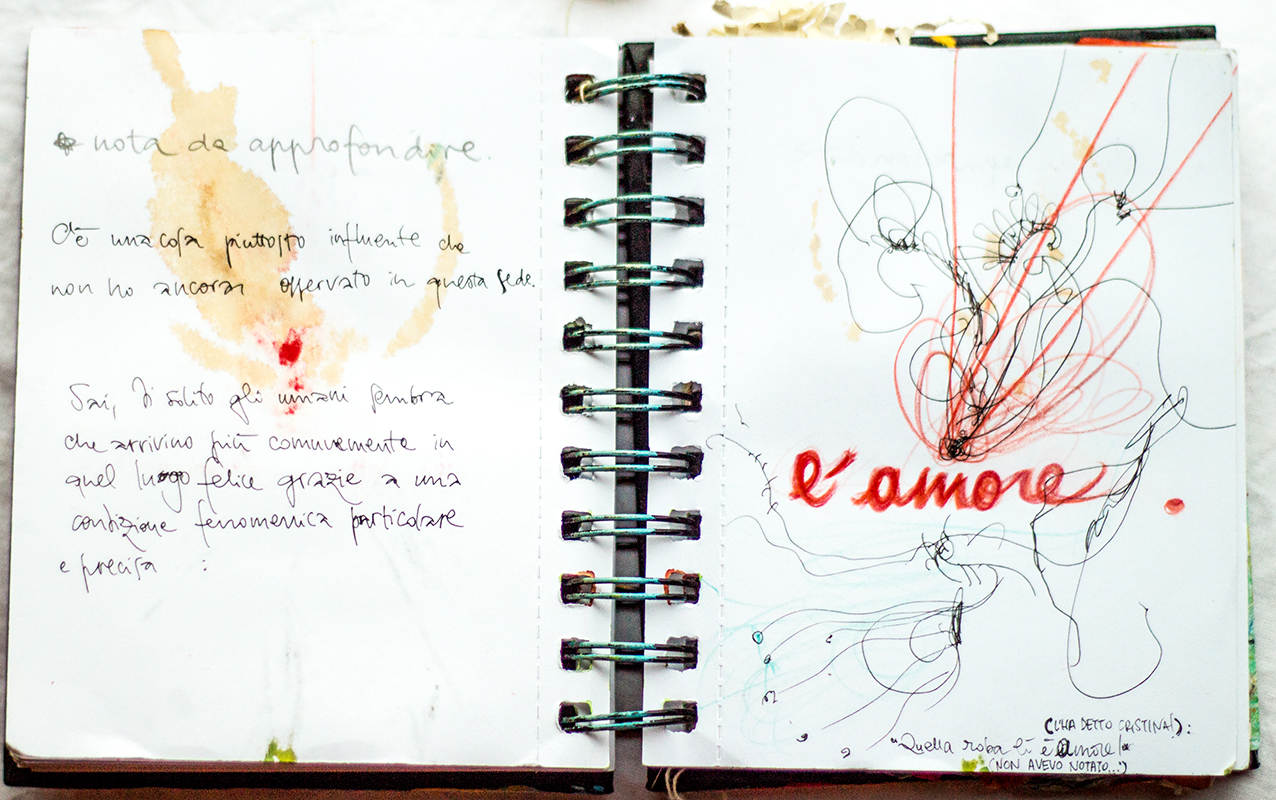 nota da approfondire.
C'è una cosa piuttosto influente che
non ho ancora osservato in questa sede.
Sai, di solito gli umani sembra
che arrivino più comunemente in
quel luogo felice grazie a una
condizione fenomenica particolare
e precisa :
e' amore.
(L'HA DETTO CRISTINA!):
"Quella roba lì è amore!"
(NON AVEVO NOTATO...)